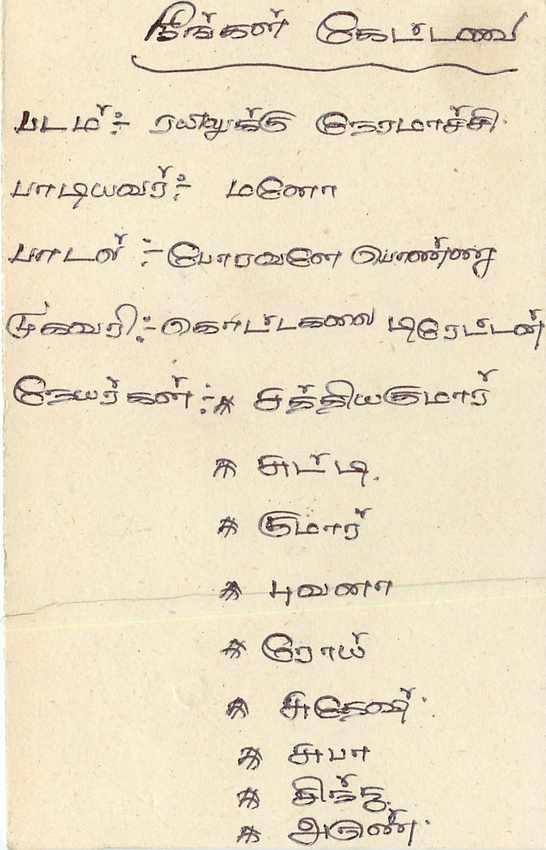 நீங்கள் கேட்டவை
படம்:- ரயிலுக்கு நேரமாச்சி
பாடியவர்:- மனோ
பாடல் :- போரவளே பொண்ணு
முகவரி:- கொட்டகலை டிரேட்டன்
நேயர்கள்:- * சத்தியகுமார்
* சுட்டி
* குமார்
* புவனா
* ரோய்
* சுகேஷ்
* சுபா
* சிந்து
* அருண்